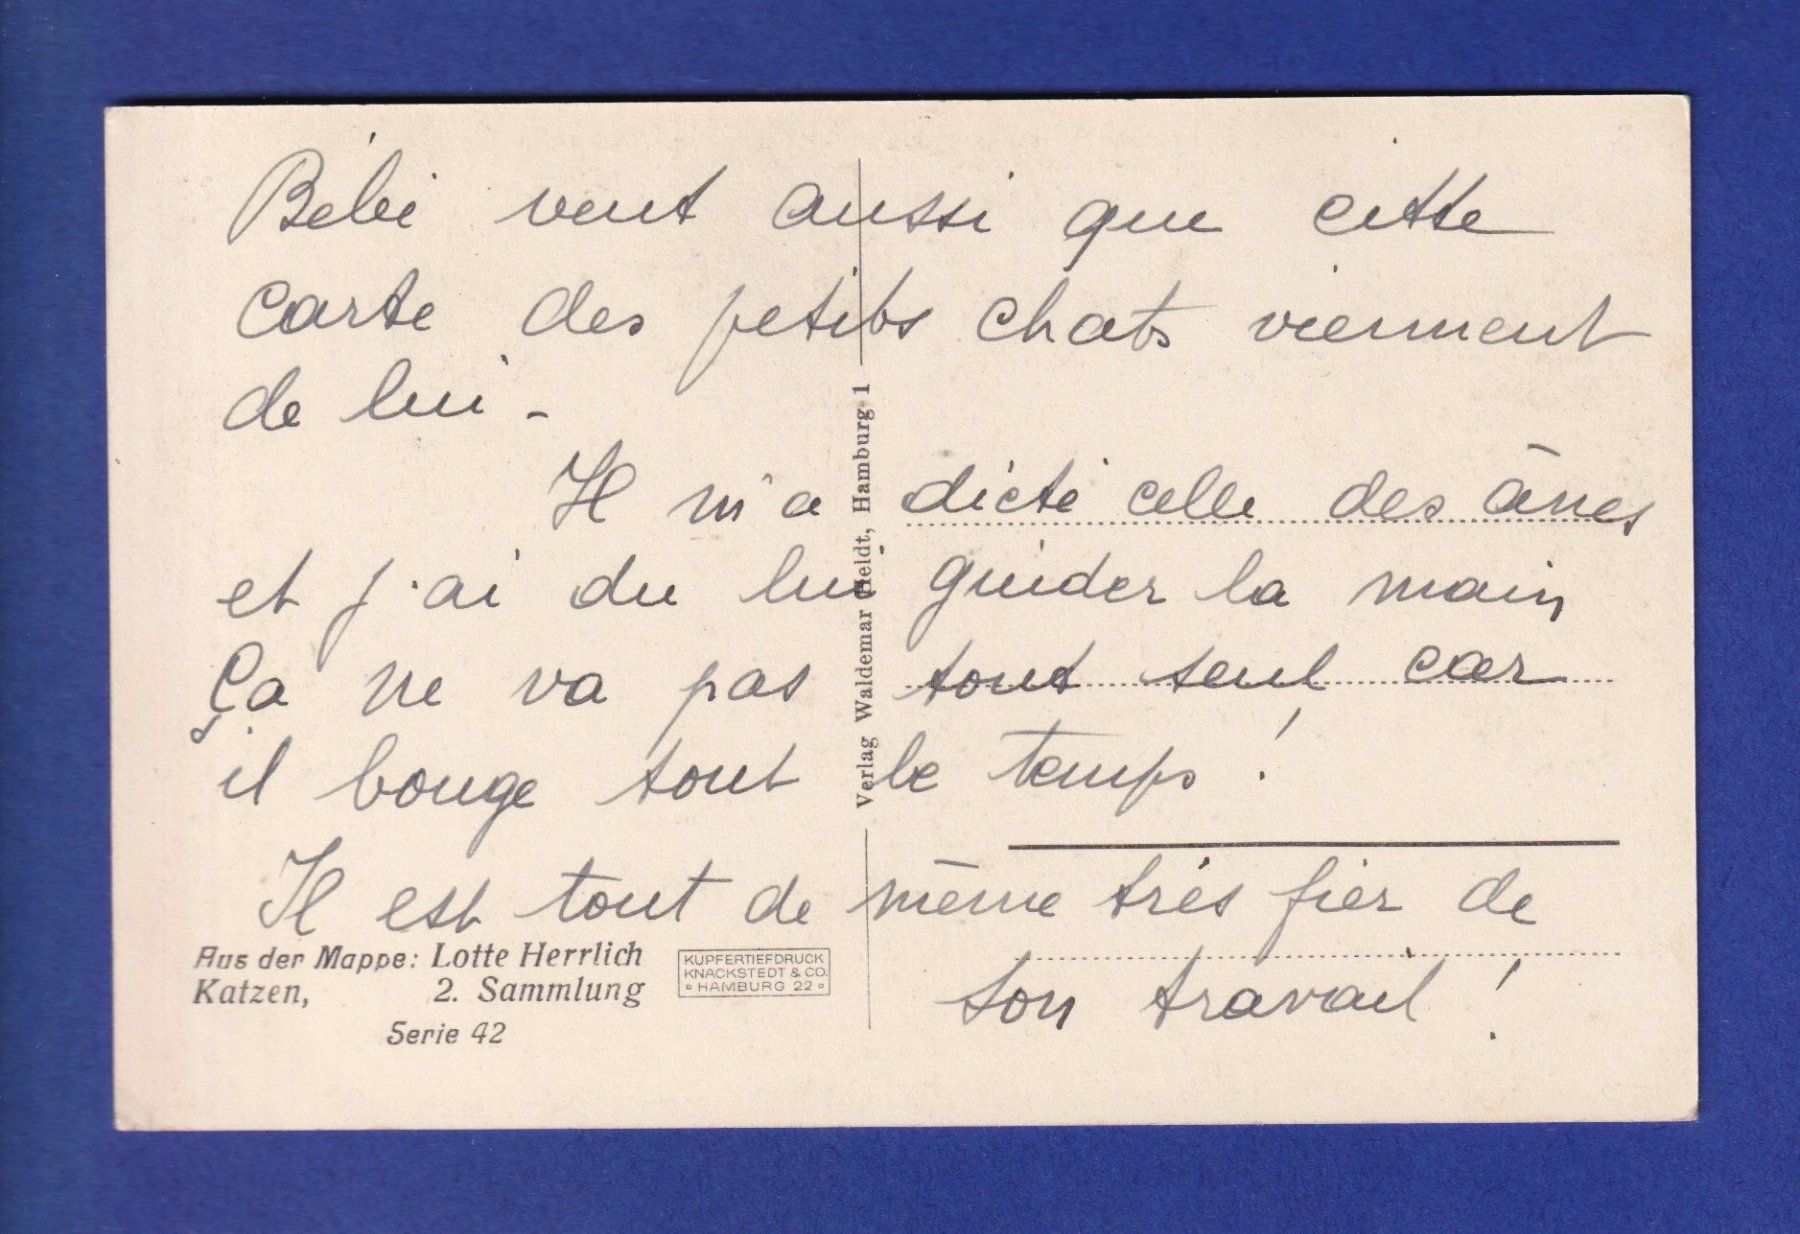 Bébé veut aussi que cette
carte des petits chats viennent
de lui -
Il m'a dicté celle des ânes
et j'ai du lui guider la main
Ça ne va pas tout seul car
il bouge tout le temps !
Il est tout de même très fier de
son travail !
Verlag Waldemar Heldt, Hamburg 1
Aus der Mappe: Lotte Herrlich
Katzen, 2. Sammlung
Serie 42
KUPFERTIEFDRUCK
KNACKSTEDT & CO.
• HAMBURG 22 •